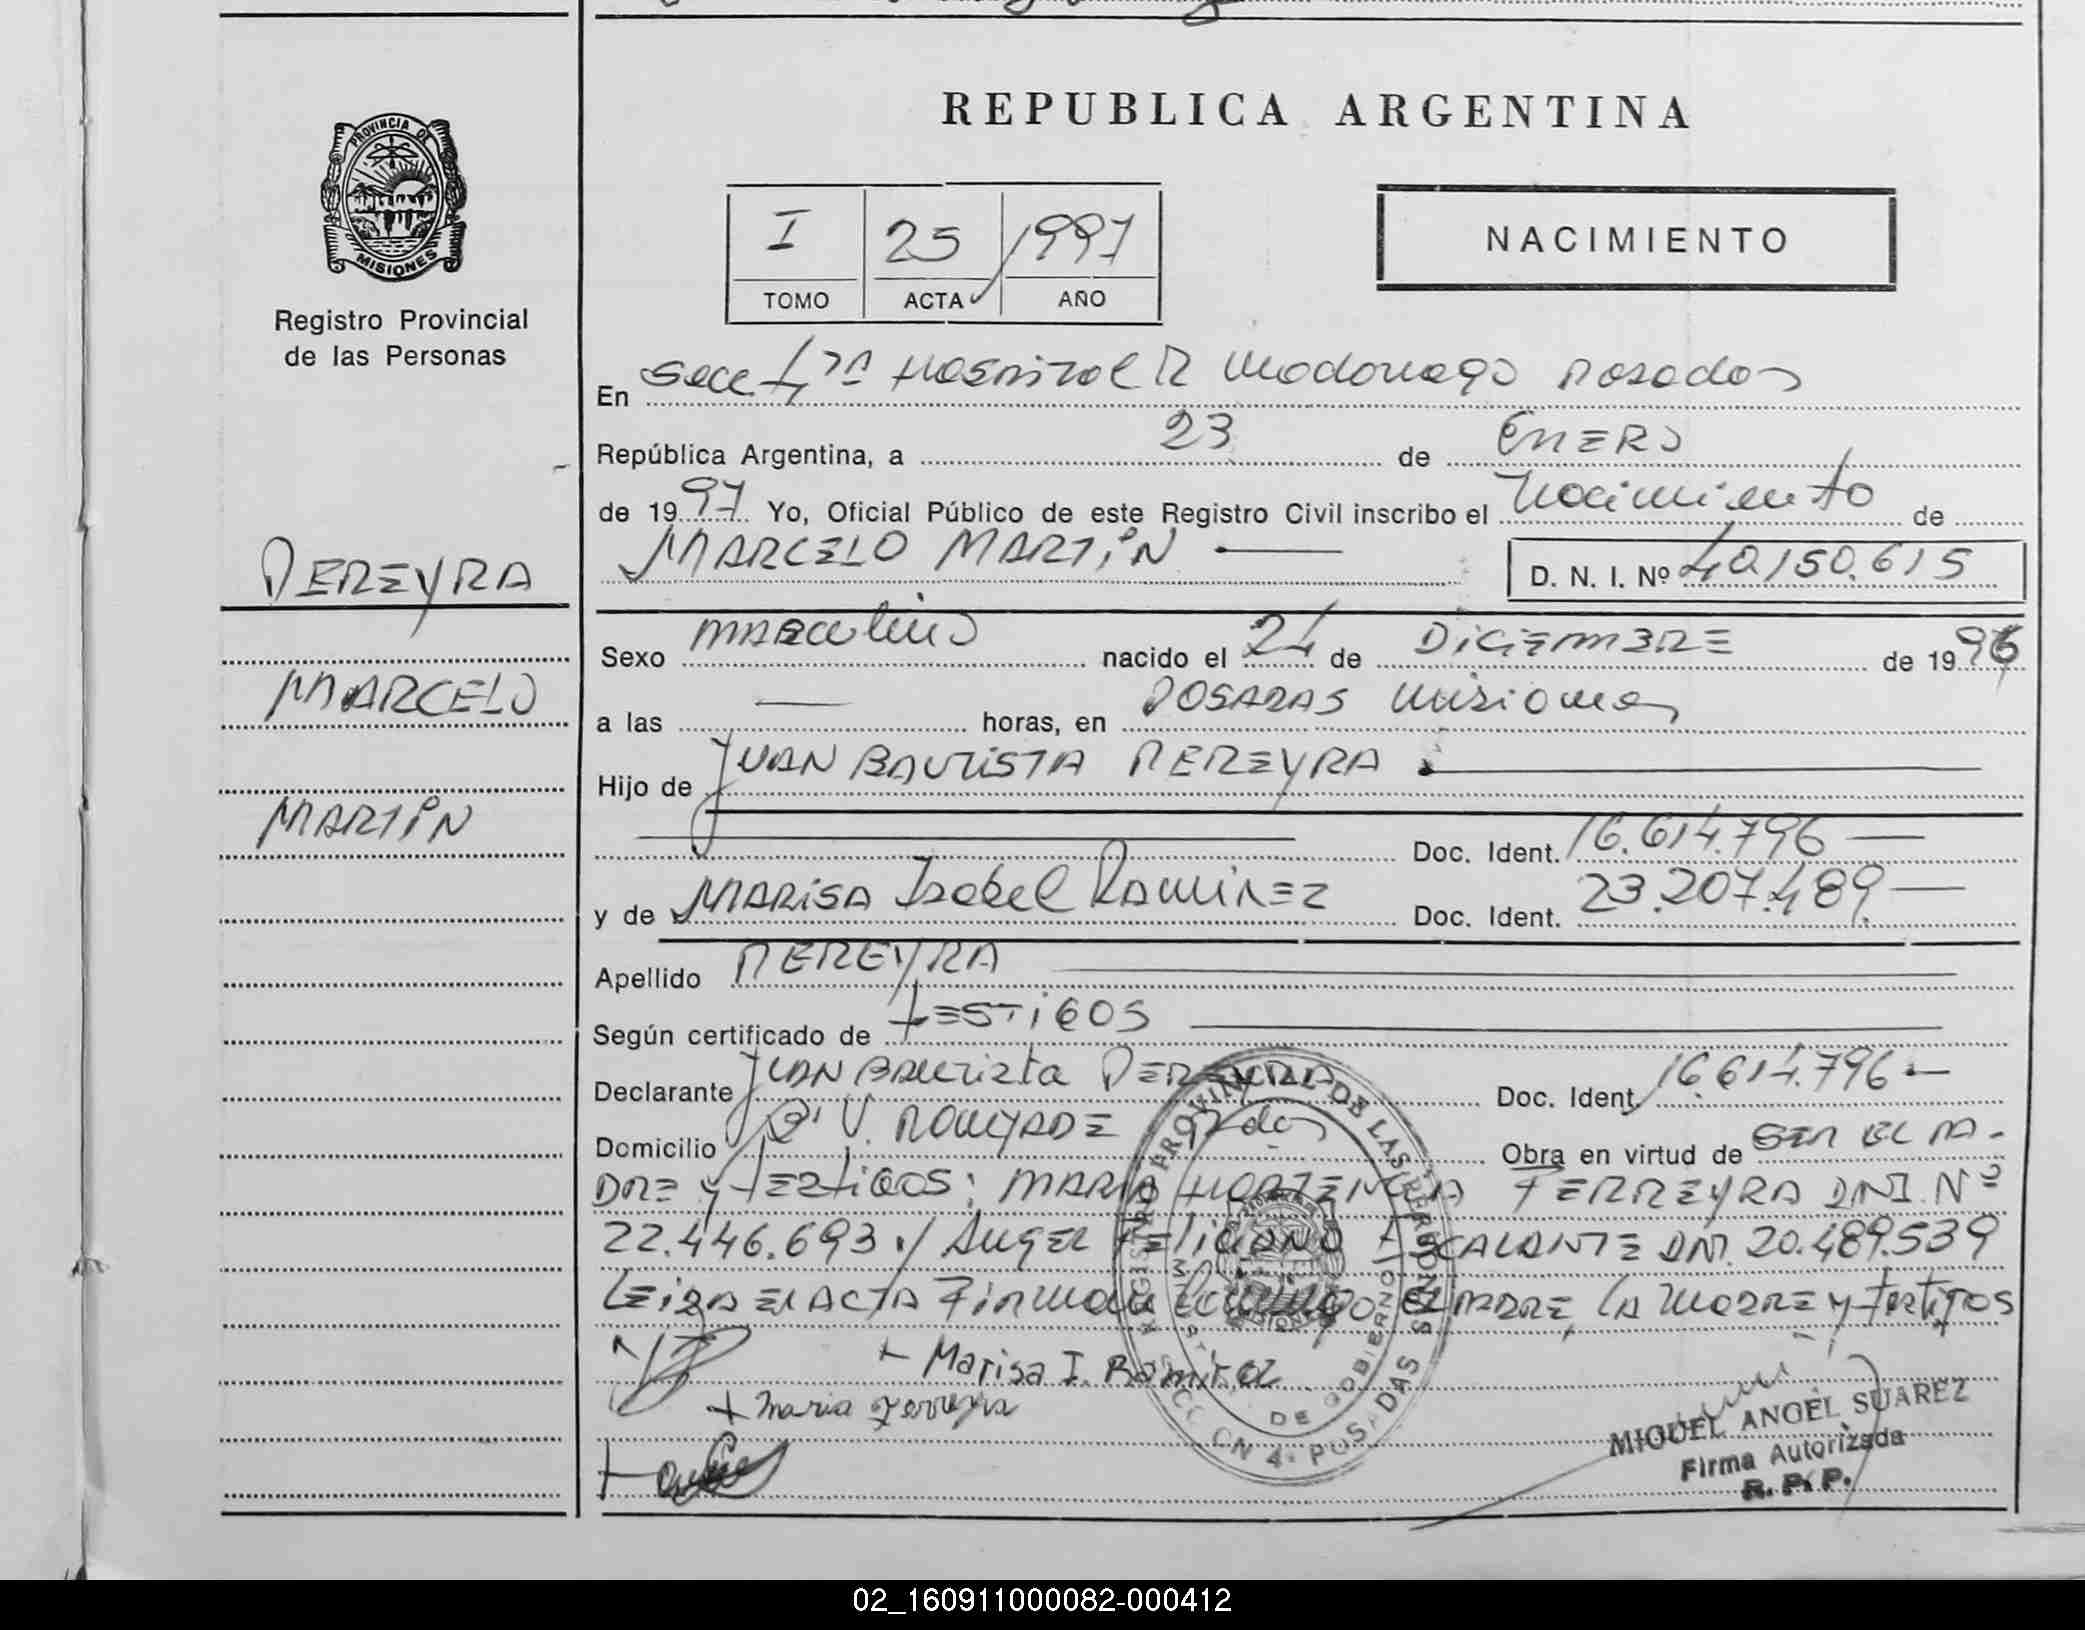 PROVINCIA DE
MISIONES
Registro Provincial
de las Personas
PEREYRA
MARCELO
MARTIN
REPUBLICA ARGENTINA
I 25 1997
TOMO ACTA AÑO
NACIMIENTO
En Secc 4ta Hospital R Madariaga Posadas
República Argentina, a 23 de ENERO
de 1997 Yo, Oficial Público de este Registro Civil inscribo el Nacimiento de
MARCELO MARTIN D. N. I. Nº 40.150.615
Sexo masculino nacido el 24 de DICIEMBRE de 1996
a las — horas, en POSADAS Misiones
Hijo de JUAN BAUTISTA PEREYRA
Doc. Ident. 16.614.796
y de MARISA Isabel RAMIREZ Doc. Ident. 23.207.489
Apellido PEREYRA
Según certificado de TESTIGOS
Declarante JUAN Bautista PEREYRA Doc. Ident. 16.614.796
Domicilio Bº V. POUJADE Pdas Obra en virtud de SER EL PA-
DRE y TESTIGOS: MARIA HORTENCIA FERREYRA DNI. Nº
22.446.693 y ANGEL FELICIANO ESCALANTE DNI. 20.489.539
LEIDA EL ACTA Firman conmigo EL PADRE, LA MADRE y testigos
+ Marisa I. Ramirez
+ Maria Ferreyra
REGISTRO PROVINCIAL DE LAS PERSONAS
DE GOBIERNO
SECCION 4ª POSADAS
MIGUEL ANGEL SUAREZ
Firma Autorizada
R. P. P.
02_160911000082-000412